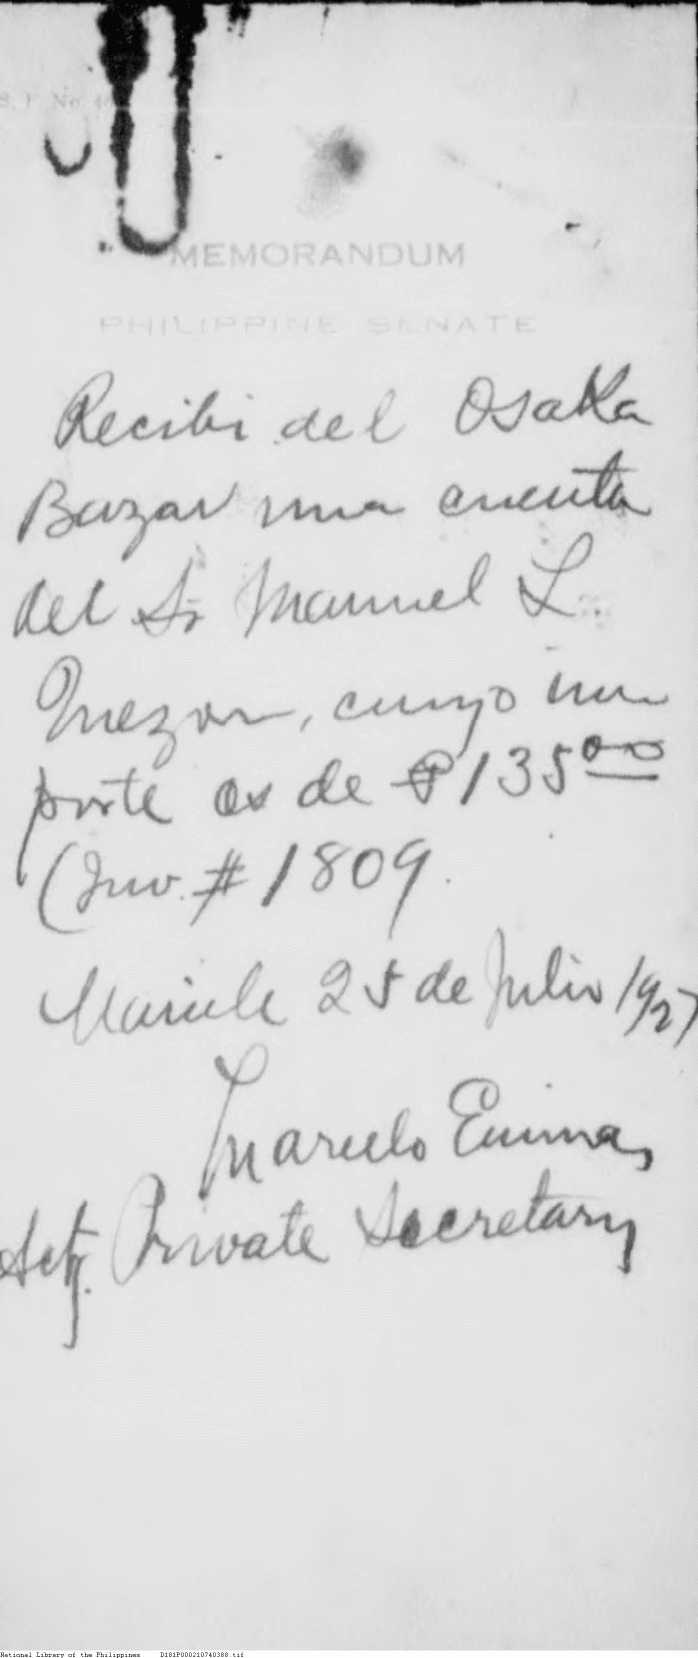 S. F. No.
MEMORANDUM
PHILIPPINE SENATE
Recibi del Osaka
Bazar una cuenta
del Sr Manuel L.
Quezon, cuyo im
porte es de ₱135 00
(Inv. # 1809.
Manila 25 de Julio 1927
Marcelo
Actg. Private Secretary
National Library of the Philippines D181P000210740388.tif